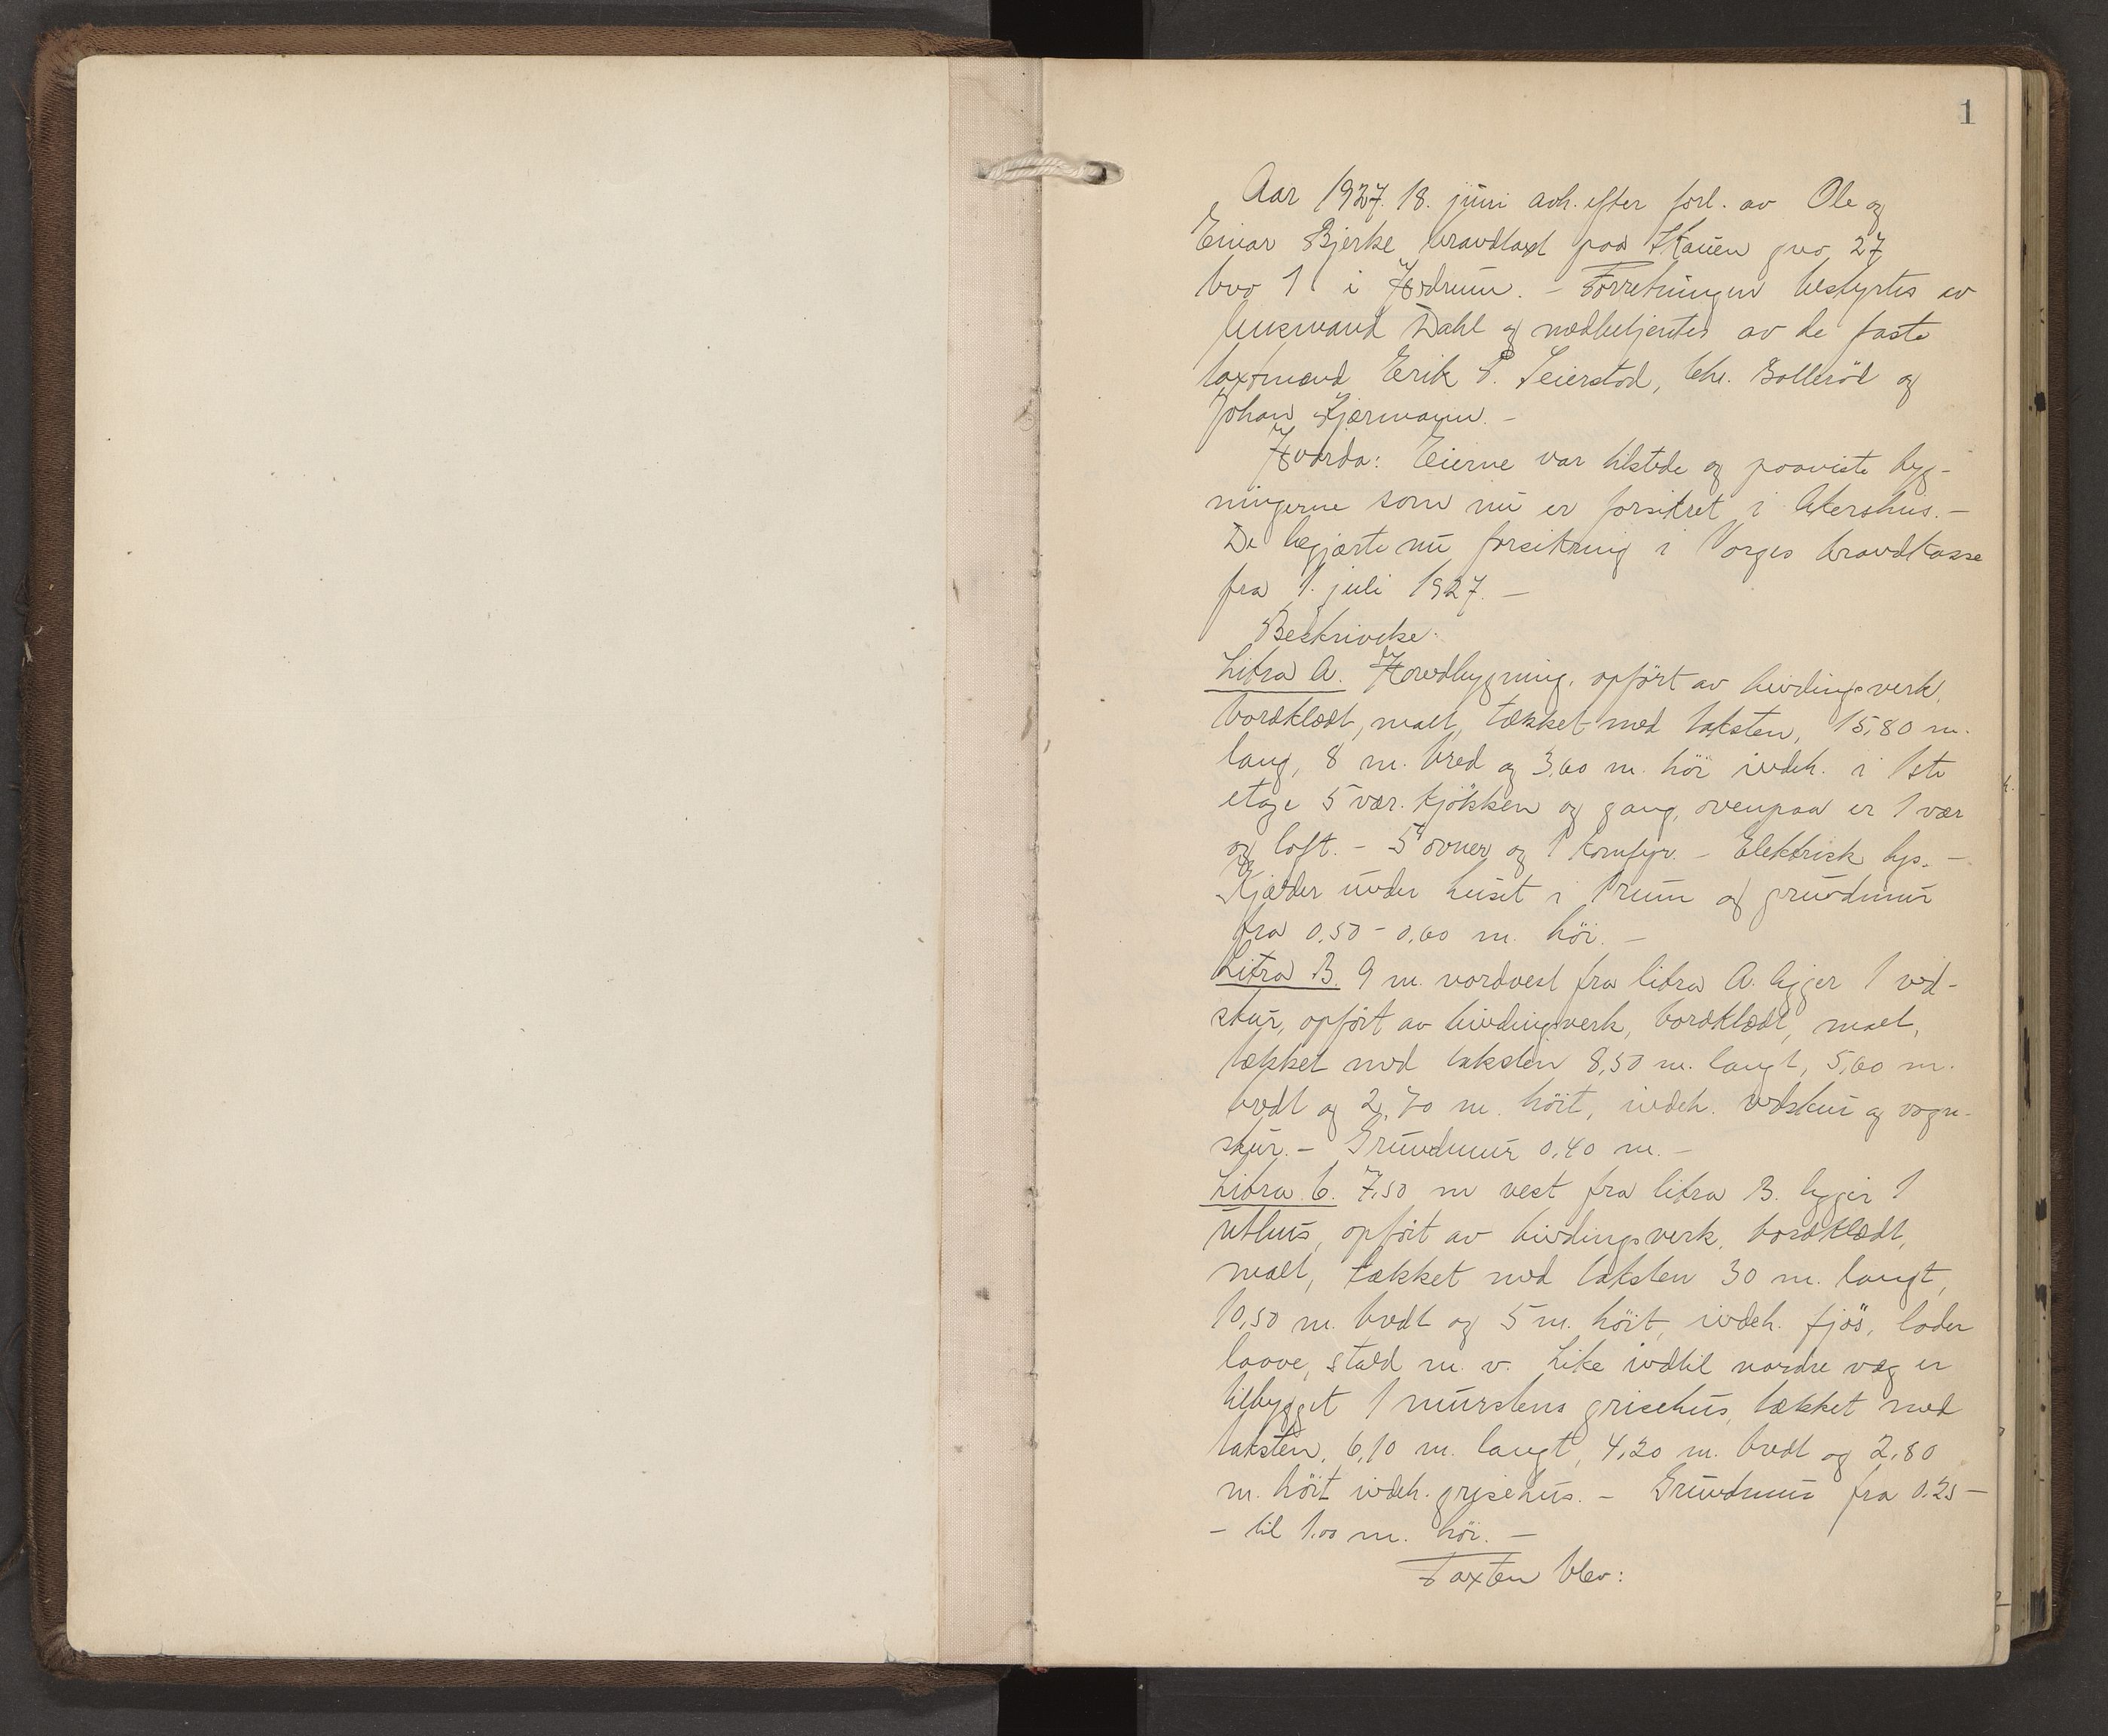 1
Aar 1927. 18. juni avh. efter forl. av Ole og
Einar Bjerke brandtaxt paa Skauen gno 27
bno 1 i Hodrum. - Forretningen bestyrtes av
lensmand Dahl og medbetjentes av de faste
taxtmænd Erik P. Seierstad, Chr. Bolleröd og
Johan Kjærmann. -
Hvorda: Eierne var tilstede og paaviste byg-
ningerne som nu er forsikret i Akershus. -
De begjærte nu forsikring i Norges brandkasse
fra 1. juli 1927. -
Beskrivelse:
Litra A. Hovedbygning, opfört av bindingsverk,
bordklædt, malt, tækket med taksten, 15,80 m.
lang, 8 m. bred og 3,60 m. höi indeh. i 1ste
etage 5 vær. kjökken og gang, ovenpaa er 1 vær
og loft. - 5 ovner og 1 komfyr. - Elektrisk lys. -
Kjælder under huset i 1 rum og grundmur
fra 0,50 - 0,60 m. höi. -
Litra B. 9 m. nordvest fra litra A. ligger 1 ved-
skur, opfört av bindingsverk, bordklædt, malt,
tækket med taksten 8,50 m. langt, 5,60 m.
bredt og 2,70 m. höit, indeh. vedskur og vogn-
skur. - Grundmur 0,40 m. -
Litra C. 7,50 m vest fra litra B. ligger 1
uthus, opfört av bindingsverk, bordklædt,
malt, tækket med taksten 30 m. langt,
10,50 m. bredt og 5 m. höit, indeh. fjös, lader
laave, stald m. v. Like indtil nordre væg er
tilbygget 1 murstens grisehus, tækket med
taksten, 6,10 m. langt, 4,20 m. bredt og 2,80
m. höit indeh. grisehus. - Grundmur fra 0.25 -
- til 1.00 m. höi. -
Taxten blev: